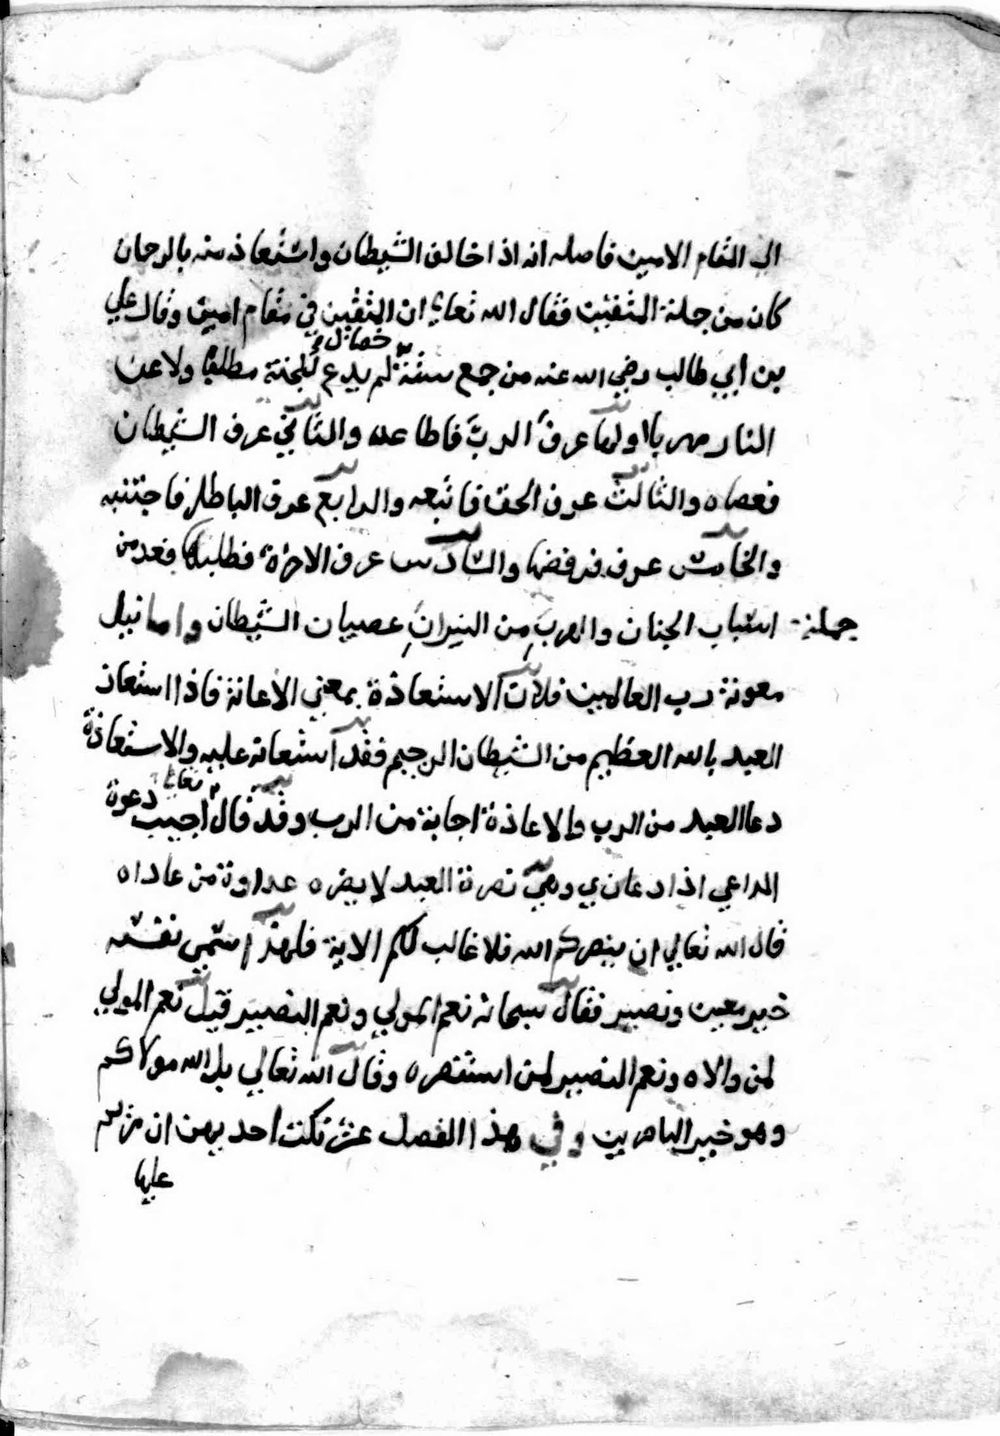 الي المقام الامين فاصله انه اذا خالف الشيطان واستعاذ منه بالرحمان
كان من جملة المتقين فقال الله تعالي ان المتقين في مقام امين وقال علي
بن ابي طالب رضي الله عنه من جمع ستة خصال لم يدع للجنة مطلبا ولا عن
النار مهربا اولها عرف الرب فاطاعه والثاني عرف الشيطان
فعصاه والثالث عرف الحق فاتبعه والرابع عرف الباطل فاجتنبه
والخامس عرف فرفضها والسادس عرف الاخرة فطلبها فعد من
جملة اسباب الجنان والهرب من النيران عصيان الشيطان واما نيل
معونة رب العالمين فلان الاستعاذة بمعني الاعانة فاذا استعاذ
العبد بالله العظيم من الشيطان الرجيم فقد استعانه عليه والاستعاذة
دعا العبد من الرب والاعاذة اجابة من الرب وقد قال تعالي اجيب دعوة
الداعي اذا دعان وهي نصرة العبد لا يضره عداوة من عاداه
قال الله تعالي ان ينصركم الله فلا غالب لكم الاية فلهذا سمي نفسه
خير معين ونصير فقال سبحانه نعم المولي ونعم النصير قيل نعم المولي
لمن والاه ونعم النصير لمن استنصره وقال الله تعالي بل الله مولاكم
وهو خير الناصرين وفي هذا الفصل نكت احديهن ان
عليها